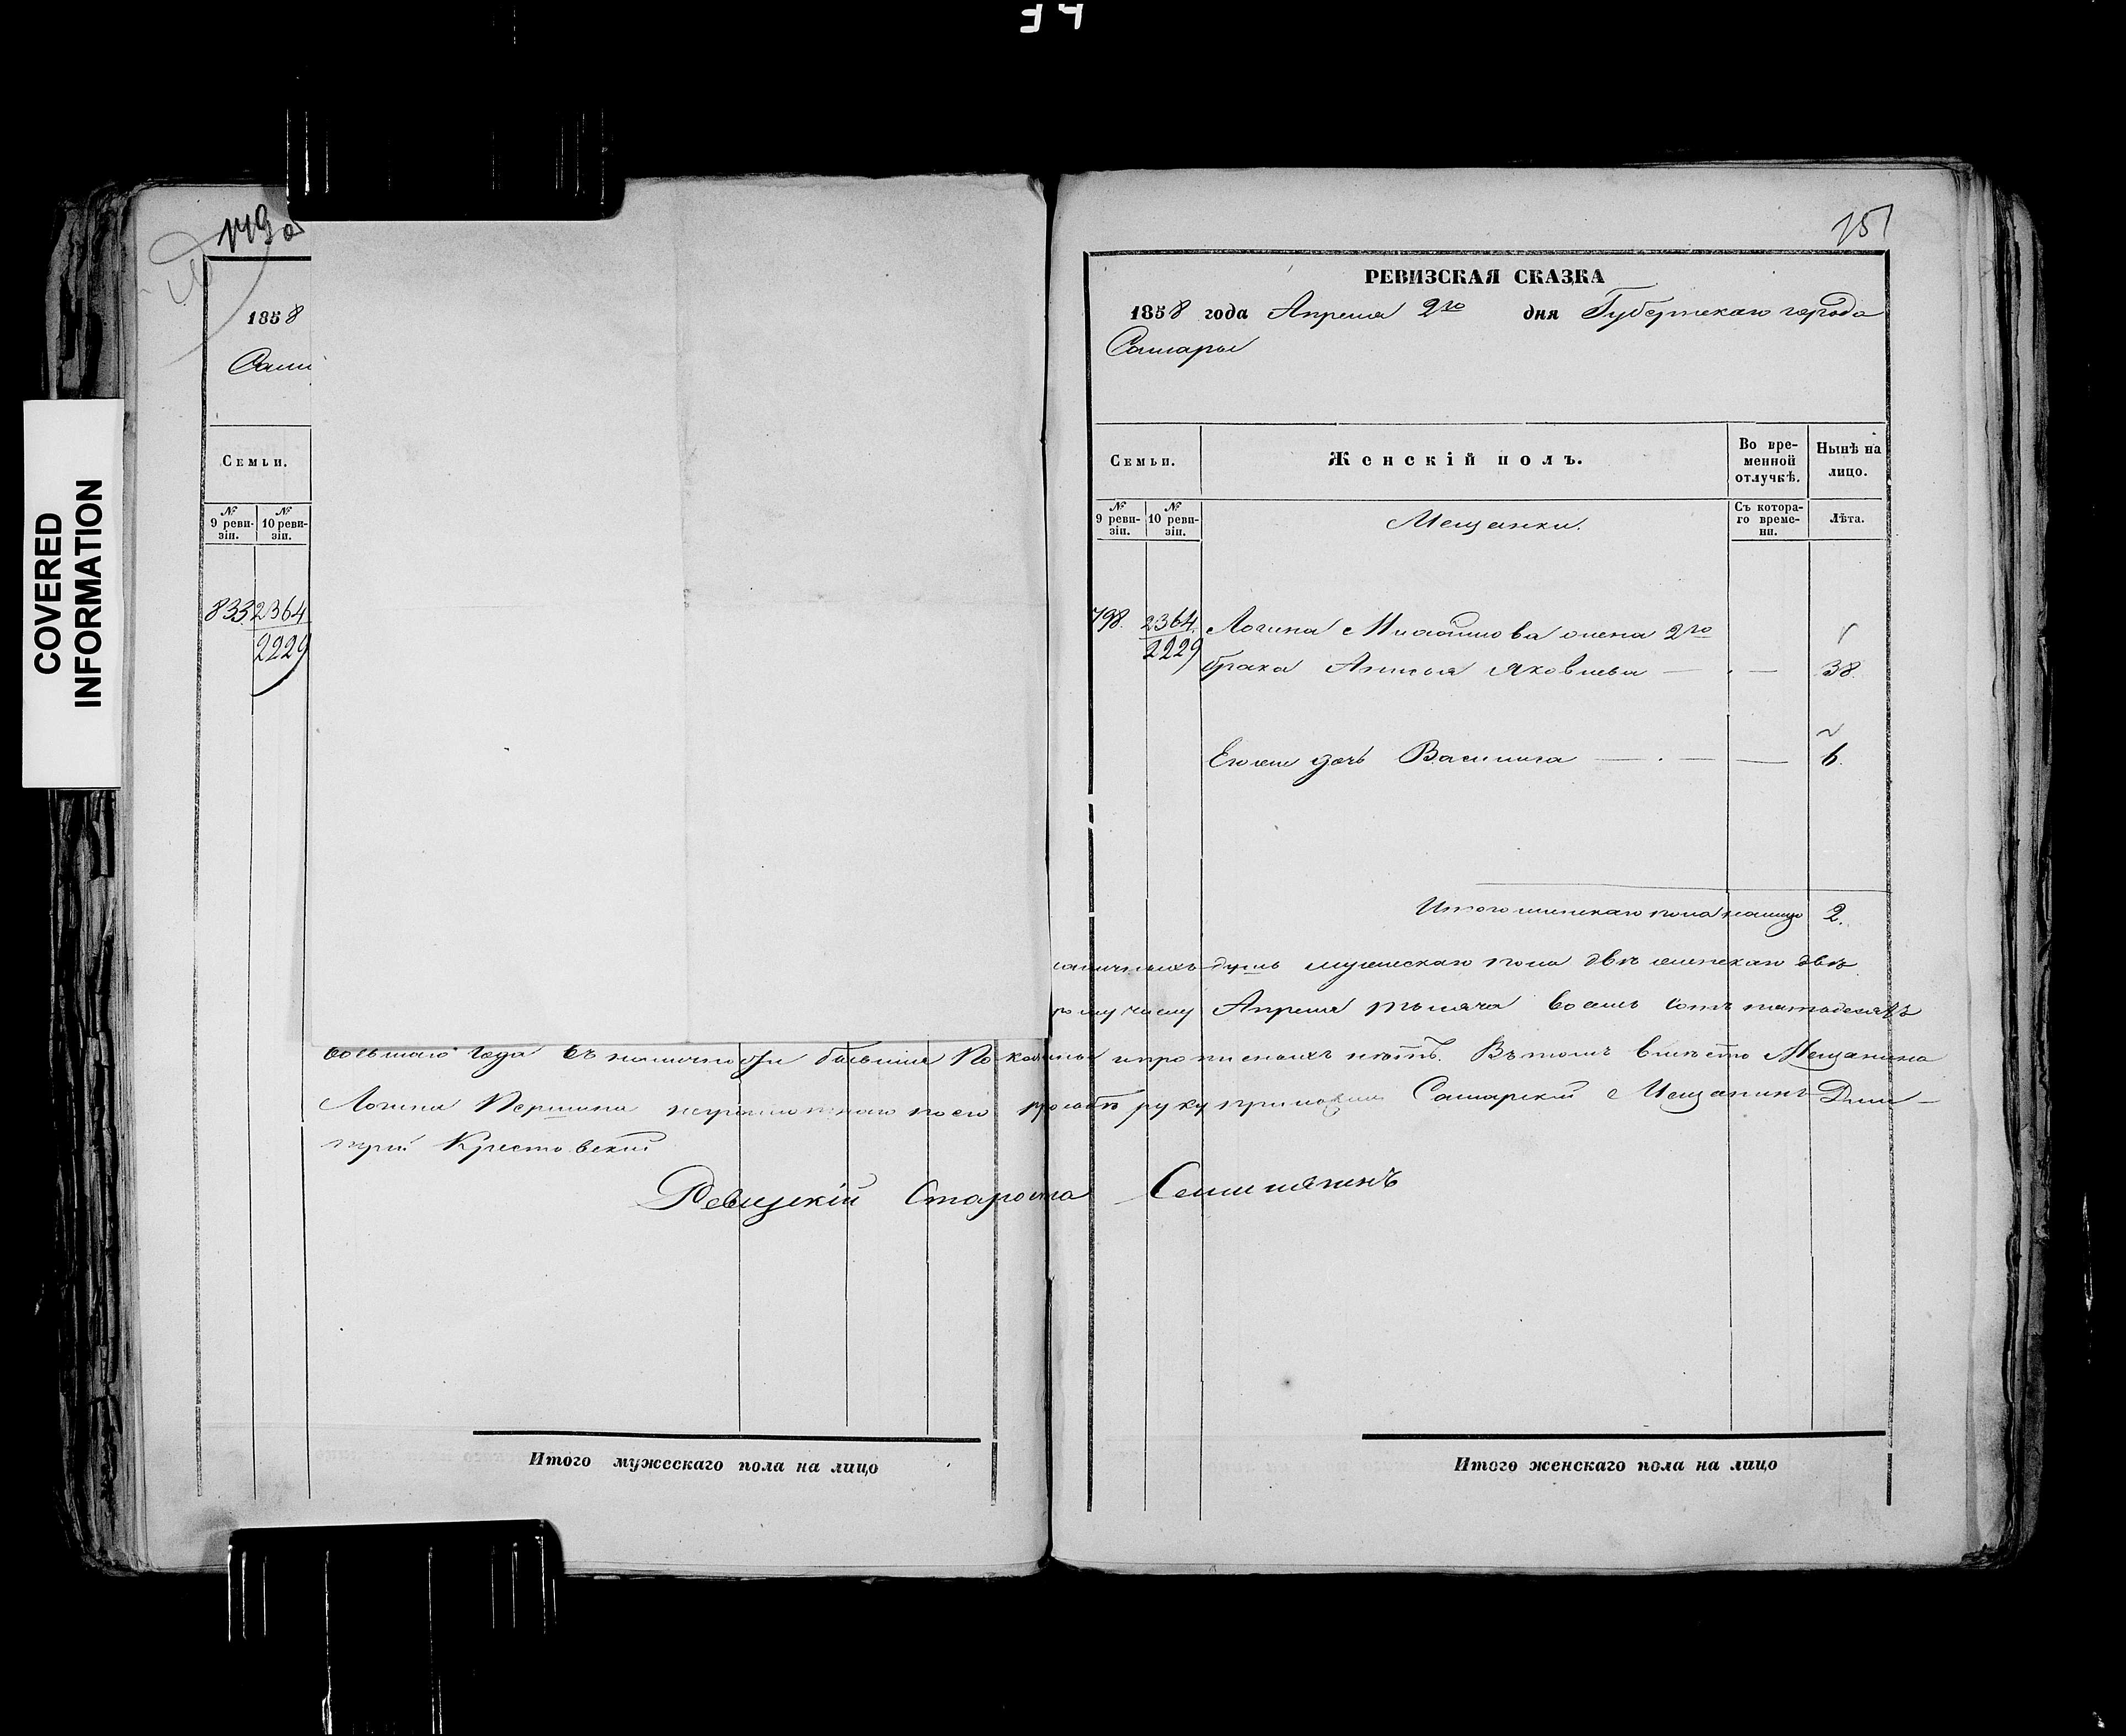 34
COVERED
INFORMATION
149 об
1858
Сам
Семьи.
№ 9 ревизіи. № 10 ревизіи.
833 2364
2229
151
РЕВИЗСКАЯ СКАЗКА
1858 года Апреля 2го дня Губернскаго города
Самары
Семьи. Женскій полъ. Во временной отлучкѣ. Нынѣ на лицо.
№ 9 ревизіи. № 10 ревизіи. Мещанки. Съ котораго времени. Лѣта.
798. 2364. Логина жена 2го
2229 брака Яковлева 38.
дочь Василиса 6.
Итого женскаго пола налицо 2.
душъ мужескаго пола двѣ женскаго двѣ
Апреля тысяча восемь сотъ пятьдесятъ
восьмаго года въ наличности бывшия Показаны и прописныхъ нѣтъ. Въ томъ вместо Мещанина
Логина Першина неграмотнаго по его прозьбѣ руку приложилъ Самарский Мещанинъ Дми-
трий Крестовский
Ревизскій Староста
Итого мужескаго пола на лицо
Итого женскаго пола на лицо